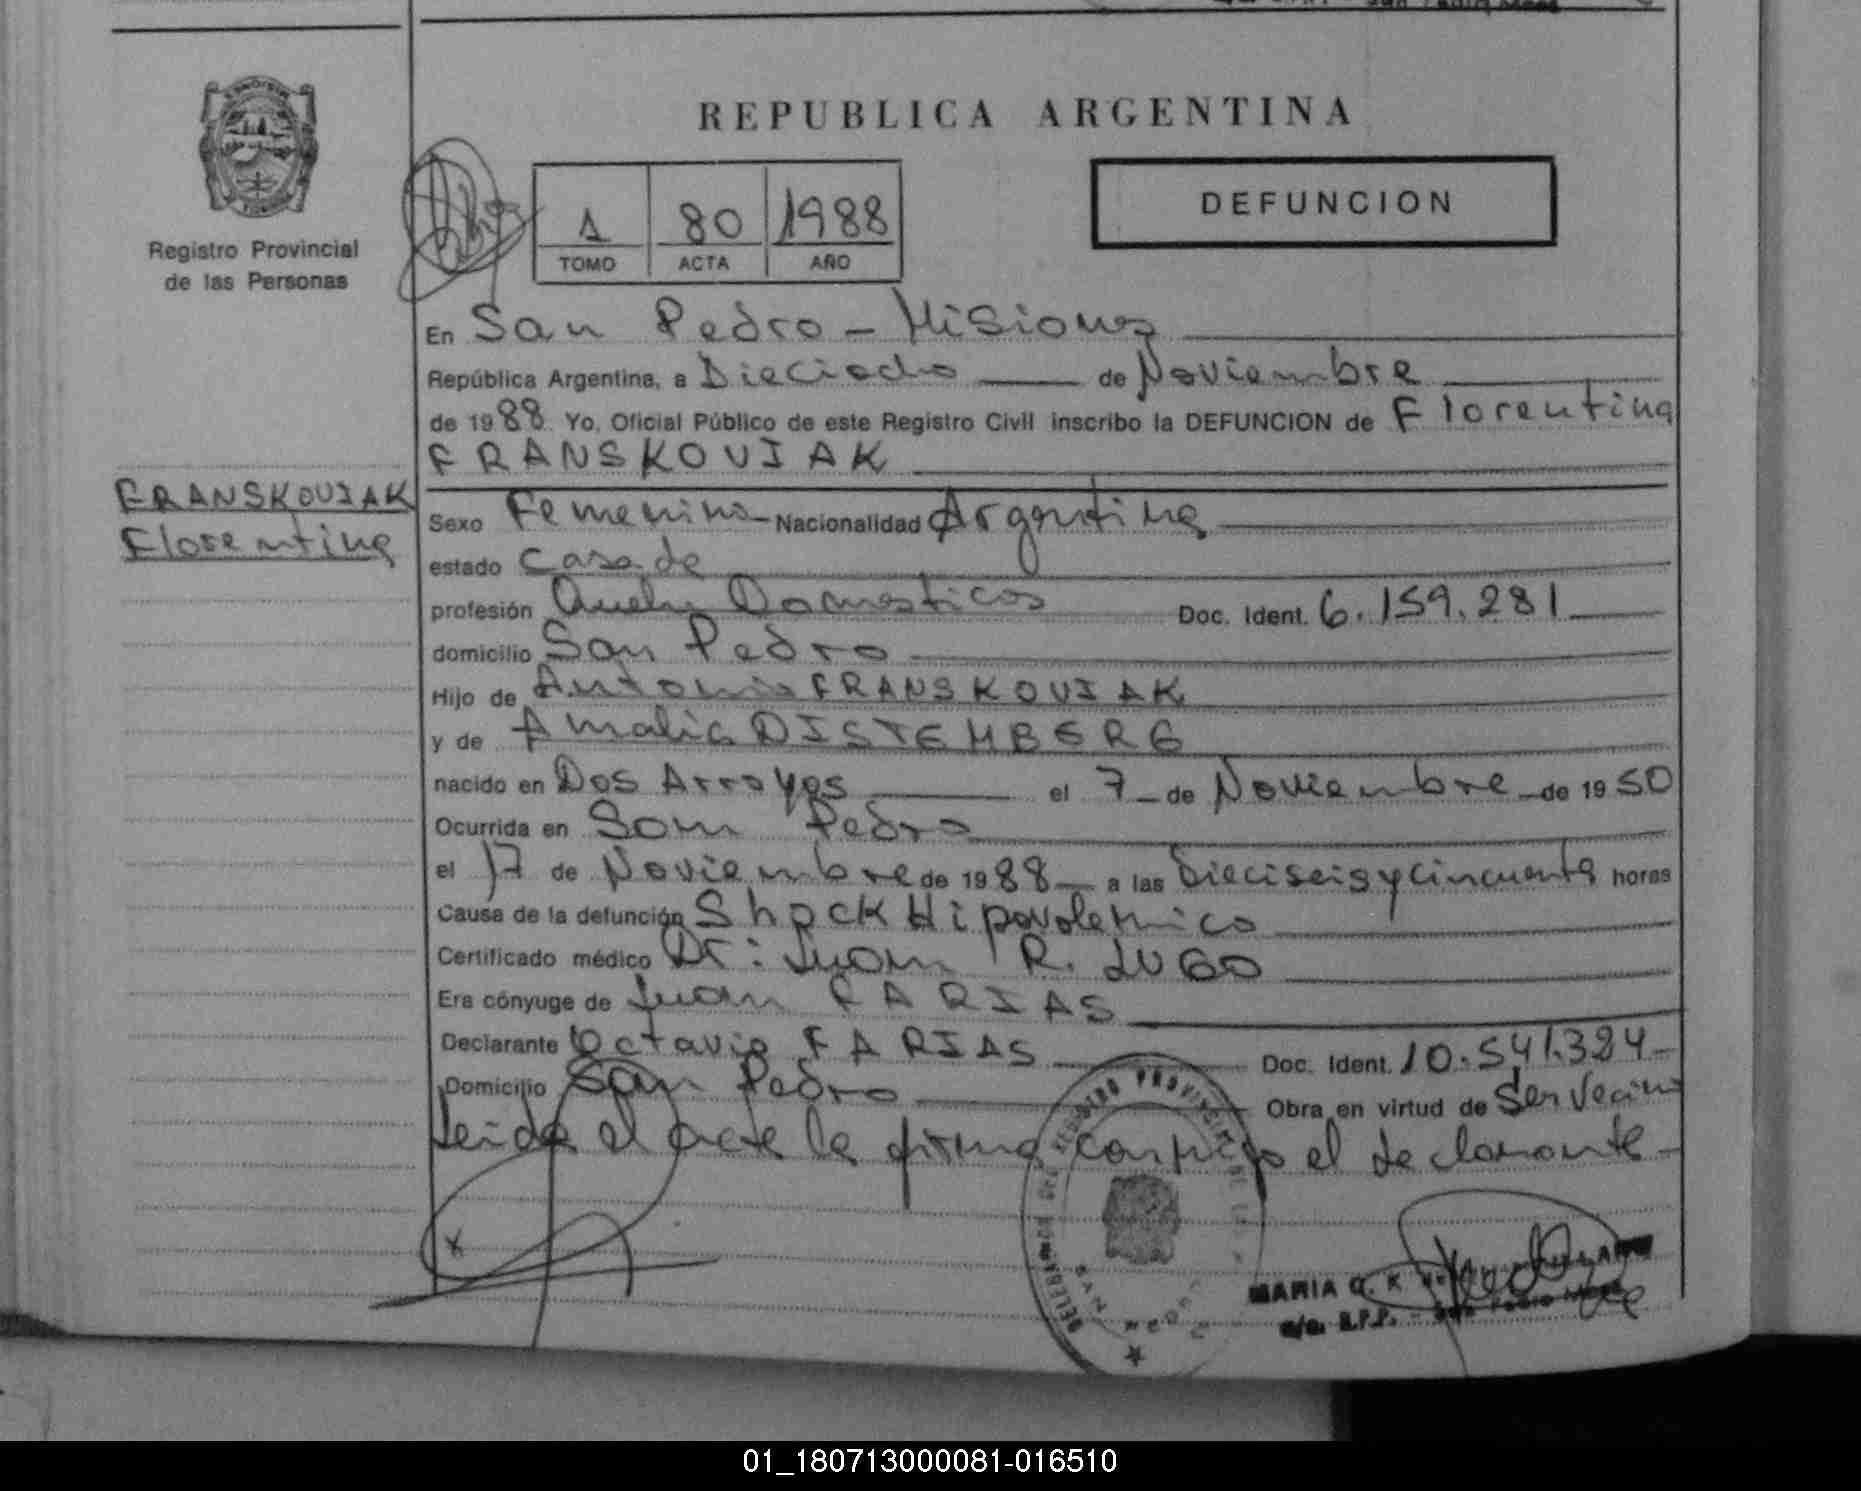 REPUBLICA ARGENTINA
DEFUNCION
Registro Provincial
de las Personas
1 80 1988
TOMO ACTA AÑO
En San Pedro - Misiones
República Argentina, a Dieciocho de Noviembre
de 1988. Yo, Oficial Público de este Registro Civil inscribo la DEFUNCION de Florentina
FRANSKOVIAK
FRANSKOVIAK
Florentina
Sexo Femenino - Nacionalidad Argentina
estado Casada
profesión Domesticos Doc. Ident. 6.159.281
domicilio San Pedro
Hijo de Antonio FRANSKOVIAK
y de Amalia DISTEMBERG
nacido en Dos Arroyos el 7 - de Noviembre - de 1950
Ocurrida en San Pedro
el 17 de Noviembre de 1988 - a las Dieciseis y cincuenta horas
Causa de la defunción Shock Hipovolemico
Certificado médico Dr: Juan R. LUGO
Era cónyuge de Juan FARIAS
Declarante Octavio FARIAS Doc. Ident. 10.541.324 -
Domicilio San Pedro Obra en virtud de Ser Vecino
Leida el acta la firma conmigo el declarante -
MARIA
R.P.P. - San Pedro
01_180713000081-016510